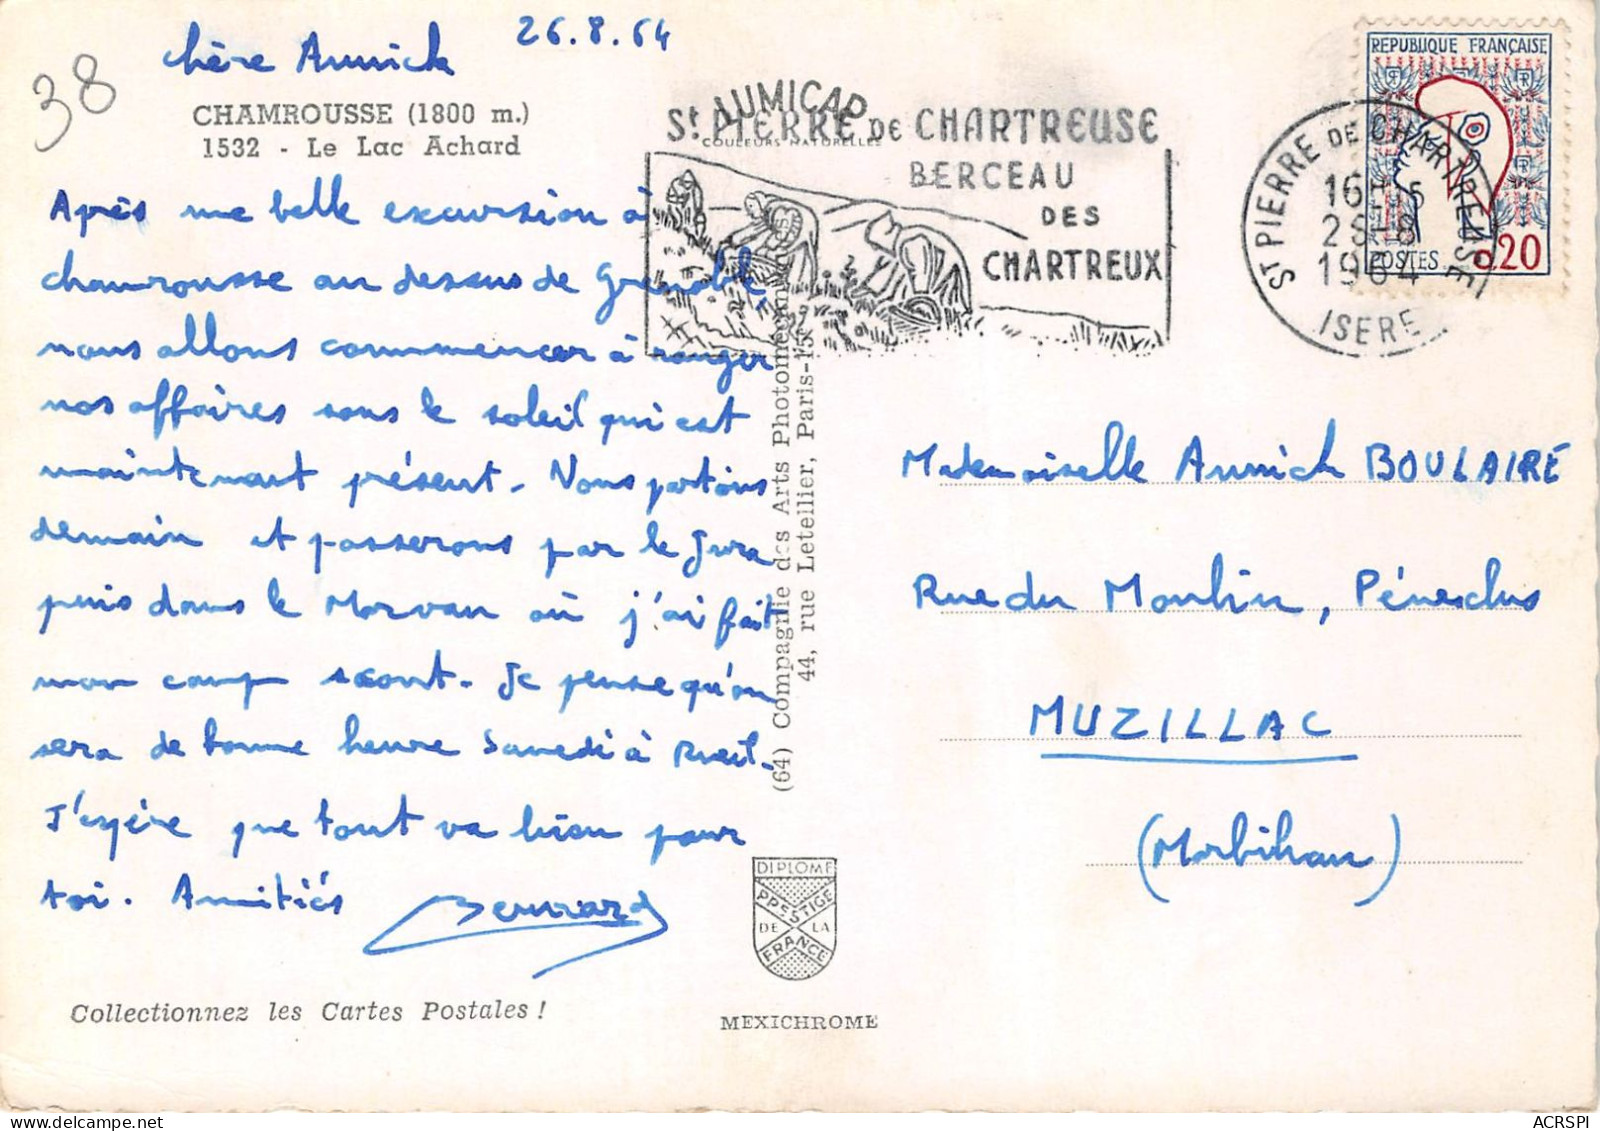 38
26.8.64
chère Annick
CHAMROUSSE (1800 m.)
1532 - Le Lac Achard
Après une belle excursion à
chamrousse au dessus de Grenoble,
nous allons commencer à ranger
nos affaires sous le soleil qui est
maintenant présent. Nous partons
demain et passerons par le Jura
puis dans le Morvan où j'ai fait
mon camp scout. Je pense qu'on
sera de bonne heure Samedi à Rueil.
J'espère que tout va bien pour
toi. Amitiés Bernard
Collectionnez les Cartes Postales !
LUMICAP
COULEURS NATURELLES
St PIERRE DE CHARTREUSE
BERCEAU
DES
CHARTREUX
(64) Compagnie des Arts Photomécaniques
44, rue Letellier, Paris-15e
DIPLOME
PRESTIGE
DE LA
FRANCE
MEXICHROME
REPUBLIQUE FRANÇAISE
POSTES 0,20
ST PIERRE DE CHARTREUSE
1964
ISERE
Mademoiselle Annick BOULAIRE
Rue du Moulin, Pénesclus
MUZILLAC
(Morbihan)
ACRSPI